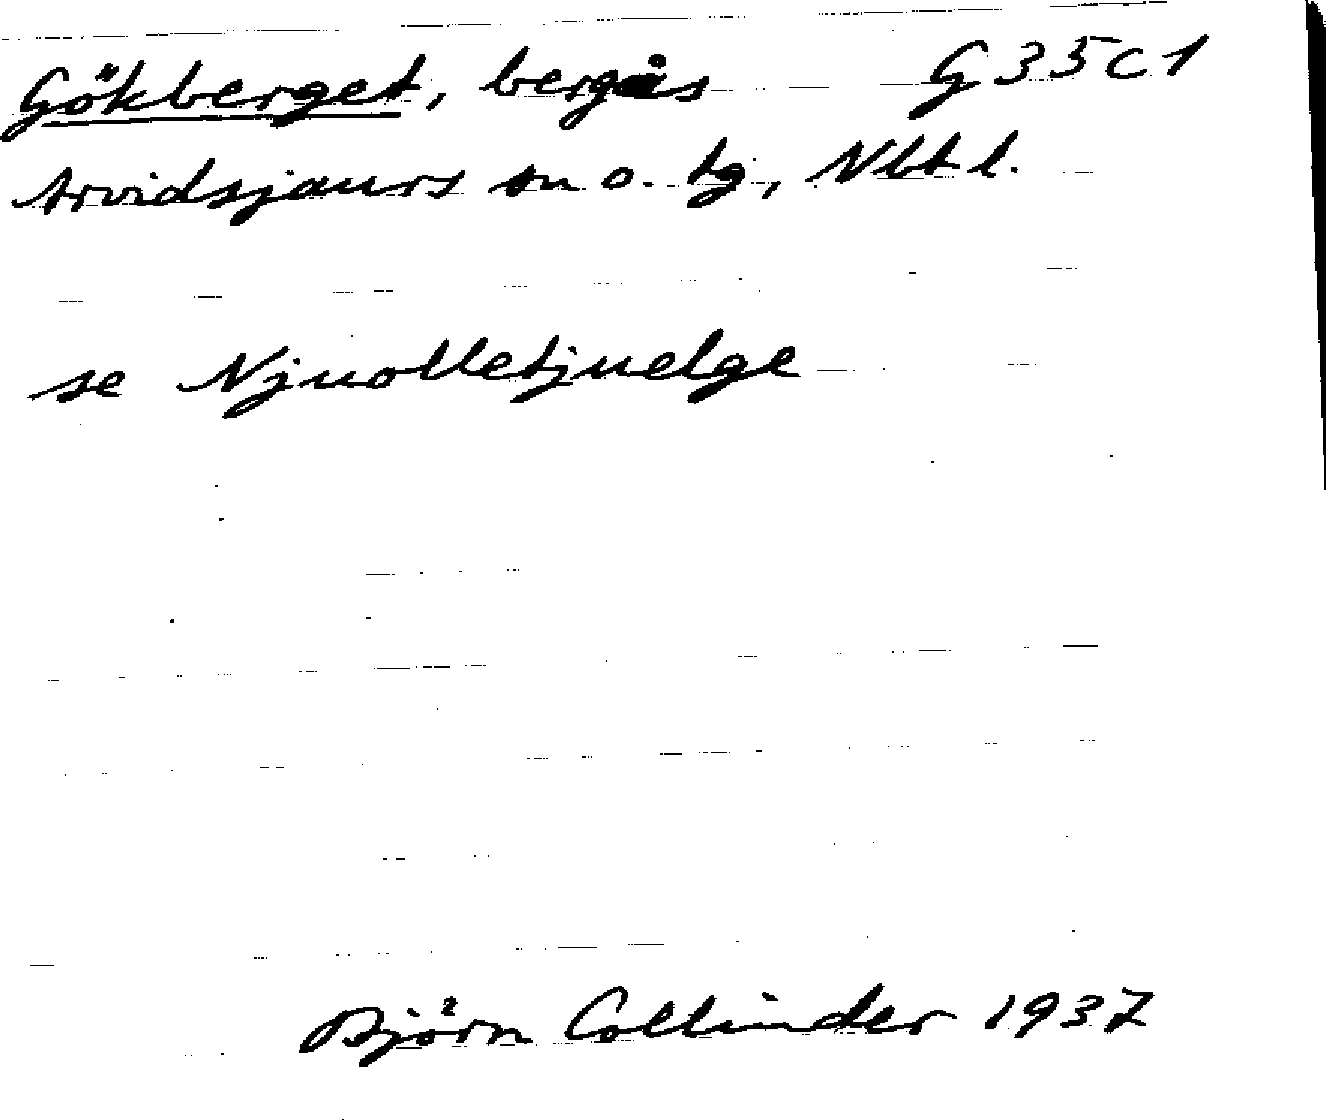 Gökberget, bergås G35C1
Arvidsjaurs sn o. tg, Nbt l.
se Njuolletjuelge
Björn Collinder 1937